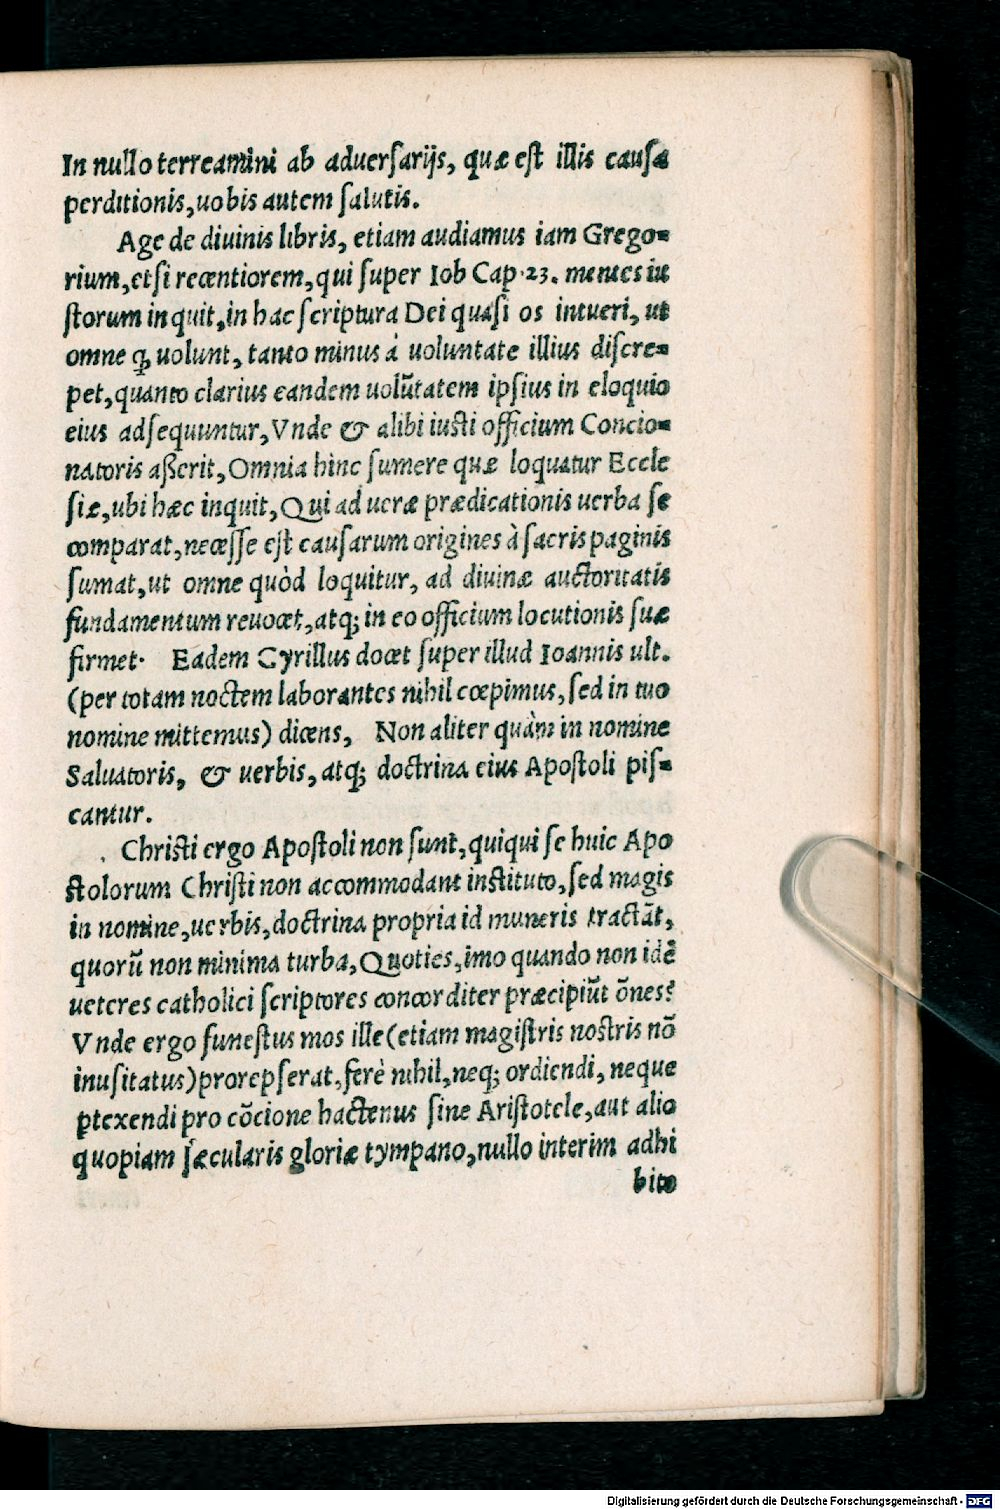 In nullo terreamini ab aduerſarijs, quæ eſt illis cauſa
perditionis, uobis autem ſalutis.
Age de diuinis libris, etiam audiamus iam Grego=
rium, etſi recentiorem, qui ſuper Iob Cap. 23. mentes iu
ſtorum inquit, in hac ſcriptura Dei quaſi os intueri, ut
omne ꝙ uolunt, tanto minus à uoluntate illius diſcre=
pet, quanto clarius eandem uolūtatem ipſius in eloquio
eius adſequuntur, Vnde & alibi iuſti officium Concio=
natoris aßerit, Omnia hinc ſumere quæ loquatur Eccle
ſiæ, ubi hæc inquit, Qui ad ueræ prædicationis uerba ſe
comparat, neceſſe eſt cauſarum origines à ſacris paginis
ſumat, ut omne quòd loquitur, ad diuinæ auctoritatis
fundamentum reuocet, atq; in eo officium locutionis ſuæ
firmet. Eadem Cyrillus docet ſuper illud Ioannis ult.
(per totam noctem laborantes nihil cœpimus, ſed in tuo
nomine mittemus) dicens, Non aliter quàm in nomine
Saluatoris, & uerbis, atq; doctrina eius Apoſtoli piſ=
cantur.
Chriſti ergo Apoſtoli non ſunt, quiqui ſe huic Apo
ſtolorum Chriſti non accommodant inſtituto, ſed magis
in nomine, uerbis, doctrina propria id muneris tractāt,
quorū non minima turba, Quoties, imo quando non idē
ueteres catholici ſcriptores concorditer præcipiūt ōnes?
Vnde ergo funeſtus mos ille (etiam magiſtris noſtris nō
inuſitatus) prorepſerat, ferè nihil, neq; ordiendi, neque
ptexendi pro cōcione hactenus ſine Ariſtotele, aut alio
quopiam ſæcularis gloriæ tympano, nullo interim adhi
bito
Digitalisierung gefördert durch die Deutsche Forschungsgemeinschaft - DFG